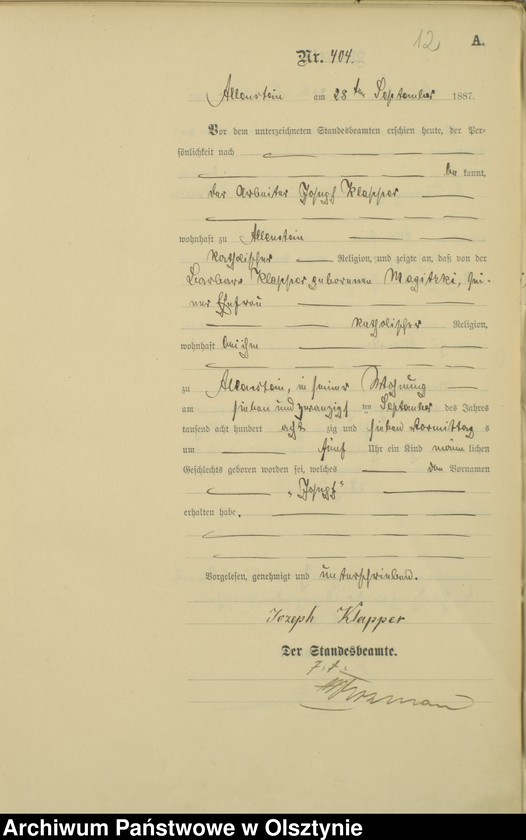 12
A.
Nr. 404.
Allenstein am 28 ten September 1887.
Vor dem unterzeichneten Standesbeamten erschien heute, der Per-
sönlichkeit nach
be kannt,
der Arbeiter Joseph Klapper
wohnhaft zu Allenstein
katholischer Religion, und zeigte an, daß von der
Barbara Klapper, geborenen Magitzki, sei-
ner Ehefrau
katholischer Religion,
wohnhaft bei ihm
zu Allenstein, in seiner Wohnung
am sieben und zwanzigs ten September des Jahres
tausend acht hundert acht zig und sieben Vormittag s
um fünf Uhr ein Kind männ lichen
Geschlechts geboren worden sei, welches den Vornamen
„Joseph“
erhalten habe.
Vorgelesen, genehmigt und unterschrieben.
Jozeph Klapper
Der Standesbeamte.
Archiwum Państwowe w Olsztynie